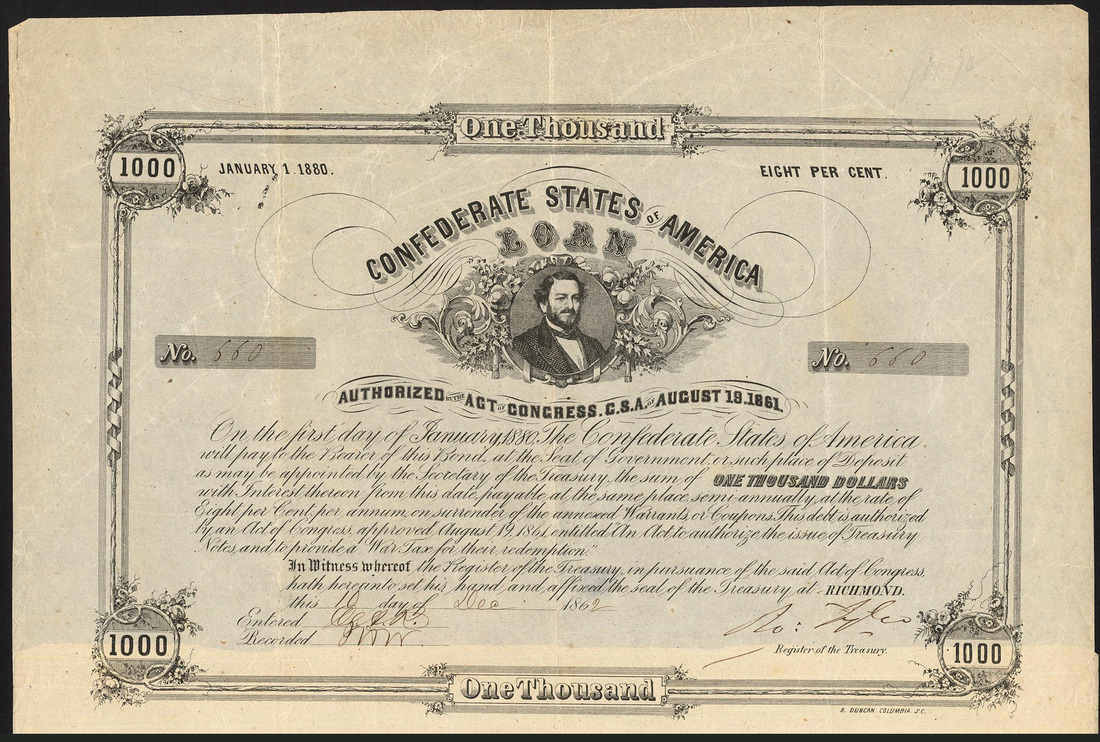 One Thousand
1000
JANUARY 1. 1880.
EIGHT PER CENT.
1000
CONFEDERATE STATES OF AMERICA
LOAN
No. 660
No. 660
AUTHORIZED BY THE ACT OF CONGRESS. C.S.A. OF AUGUST 19. 1861.
On the first day of January, 1880, The Confederate States of America
will pay to the Bearer of this Bond, at the Seat of Government, or such place of Deposit
as may be appointed by the Secretary of the Treasury, the sum of ONE THOUSAND DOLLARS
with Interest thereon from this date, payable at the same place semi-annually, at the rate of
Eight per Cent. per annum, on surrender of the annexed Warrants, or Coupons. This debt is authorized
by an Act of Congress, approved August 19, 1861, entitled "An Act to authorize the issue of Treasury
Notes, and to provide a War Tax for their redemption."
In Witness whereof, the Register of the Treasury, in pursuance of the said Act of Congress,
hath hereinto set his hand and affixed the seal of the Treasury, at RICHMOND.
this 16 day of Dec 1862
Entered
Recorded
Ro: Tyler
Register of the Treasury.
1000
1000
One Thousand
B. DUNCAN, COLUMBIA, S.C.